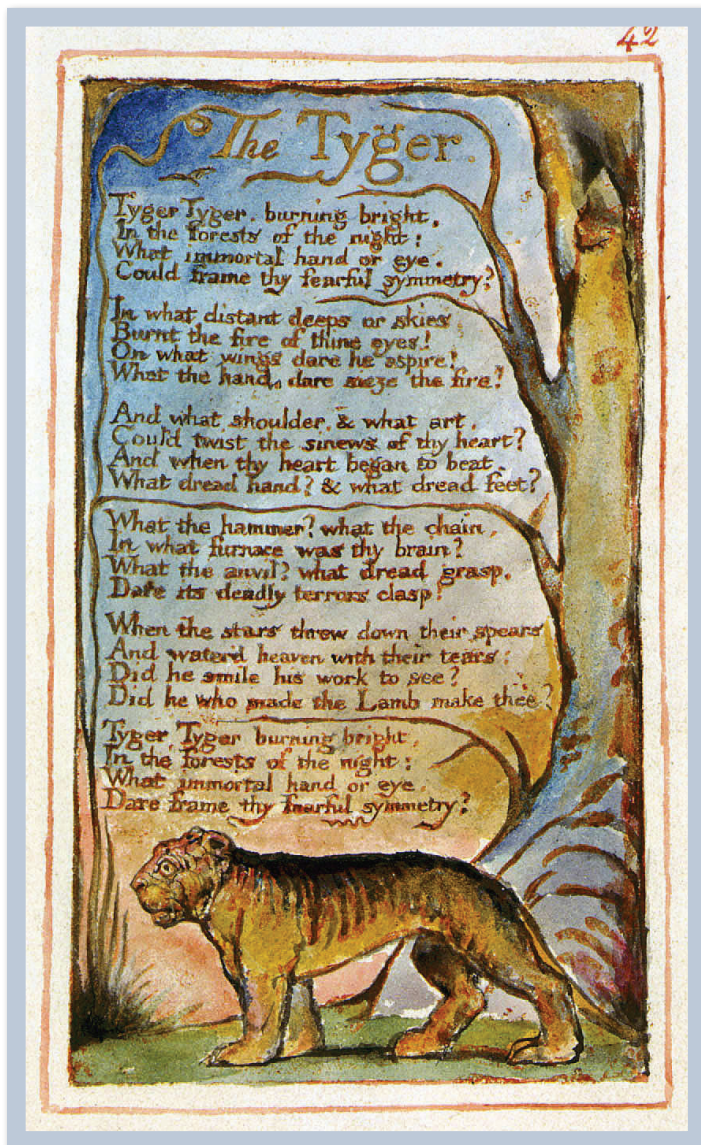 42
The Tyger.
Tyger Tyger. burning bright,
In the forests of the night:
What immortal hand or eye.
Could frame thy fearful symmetry?
In what distant deeps or skies
Burnt the fire of thine eyes!
On what wings dare he aspire!
What the hand, dare sieze the fire?
And what shoulder, & what art,
Could twist the sinews of thy heart?
And when thy heart began to beat,
What dread hand? & what dread feet?
What the hammer? what the chain,
In what furnace was thy brain?
What the anvil? what dread grasp,
Dare its deadly terrors clasp!
When the stars threw down their spears
And waterd heaven with their tears:
Did he smile his work to see?
Did he who made the Lamb make thee?
Tyger Tyger burning bright,
In the forests of the night:
What immortal hand or eye,
Dare frame thy fearful symmetry?